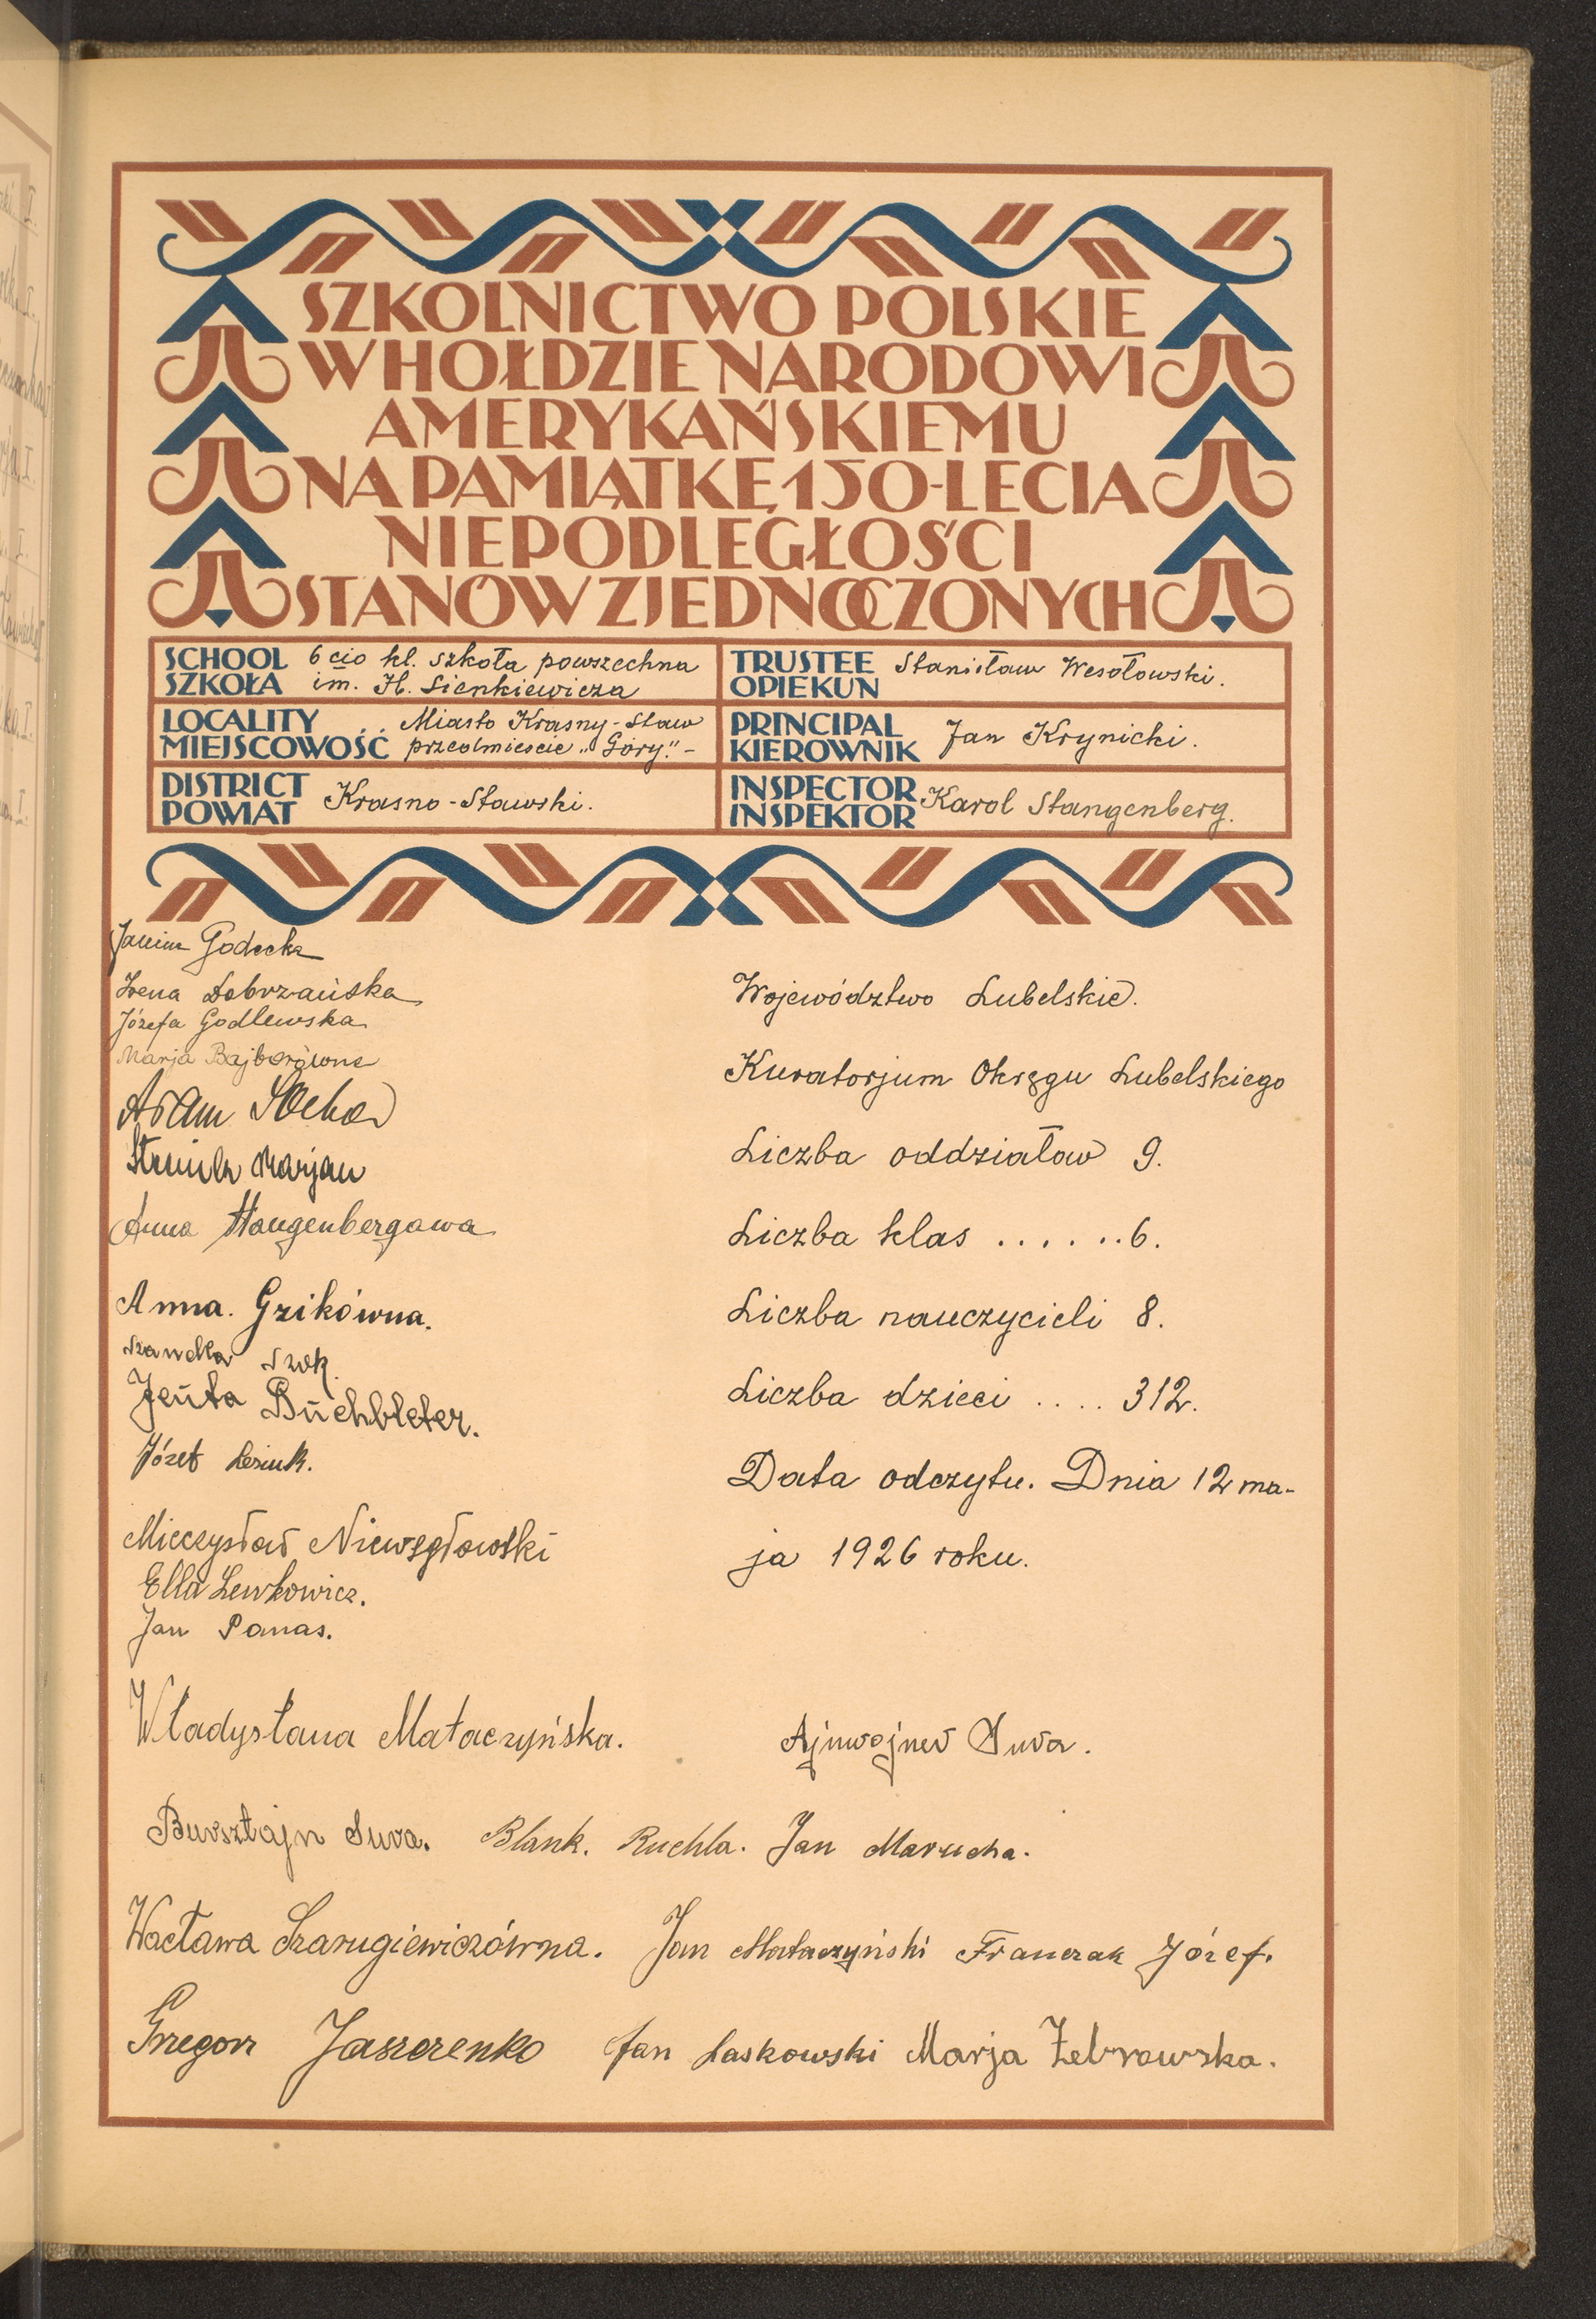 SZKOLNICTWO POLSKIE
W HOŁDZIE NARODOWI
AMERYKAŃSKIEMU
NA PAMIĄTKĘ 150-LECIA
NIEPODLEGŁOŚCI
STANÓW ZJEDNOCZONYCH
SCHOOL
SZKOŁA
6 cio kl. szkoła powszechna
im. H. Sienkiewicza
TRUSTEE
OPIEKUN
Stanisław Wesołowski.
LOCALITY
MIEJSCOWOŚĆ
Miasto Krasny-Staw
przedmieście „Góry." -
PRINCIPAL
KIEROWNIK
Jan Krynicki.
DISTRICT
POWIAT
Krasno-Stawski.
INSPECTOR
INSPEKTOR
Karol Stangenberg.
Janina Godecka
Irena Dobrzańska
Józefa Godlewska
Marja Bajborówna
Adam Socha
Marjan
Anna Stangenbergowa
Anna. Grikówna.
Szwk.
Jenta Buchbleter.
Józef Lesiuk.
Mieczysław Niewęgłowski
Ella Lewkowicz.
Jan Panas.
Województwo Lubelskie.
Kuratorjum Okręgu Lubelskiego
Liczba oddziałow 9.
Liczba klas . . . . . . 6.
Liczba nauczycieli 8.
Liczba dzieci . . . . 312.
Data odczytu. Dnia 12 ma-
ja 1926 roku.
Władysława Mataczyńska. Ajnwojner Sura.
Bursztajn Sura. Blank. Ruchla. Jan Marucha.
Wacława Szarugiewiczówna. Jan Mataczyński Franczak Józef.
Grzegorz Jaszczenko Jan Laskowski Marja Żebrowska.